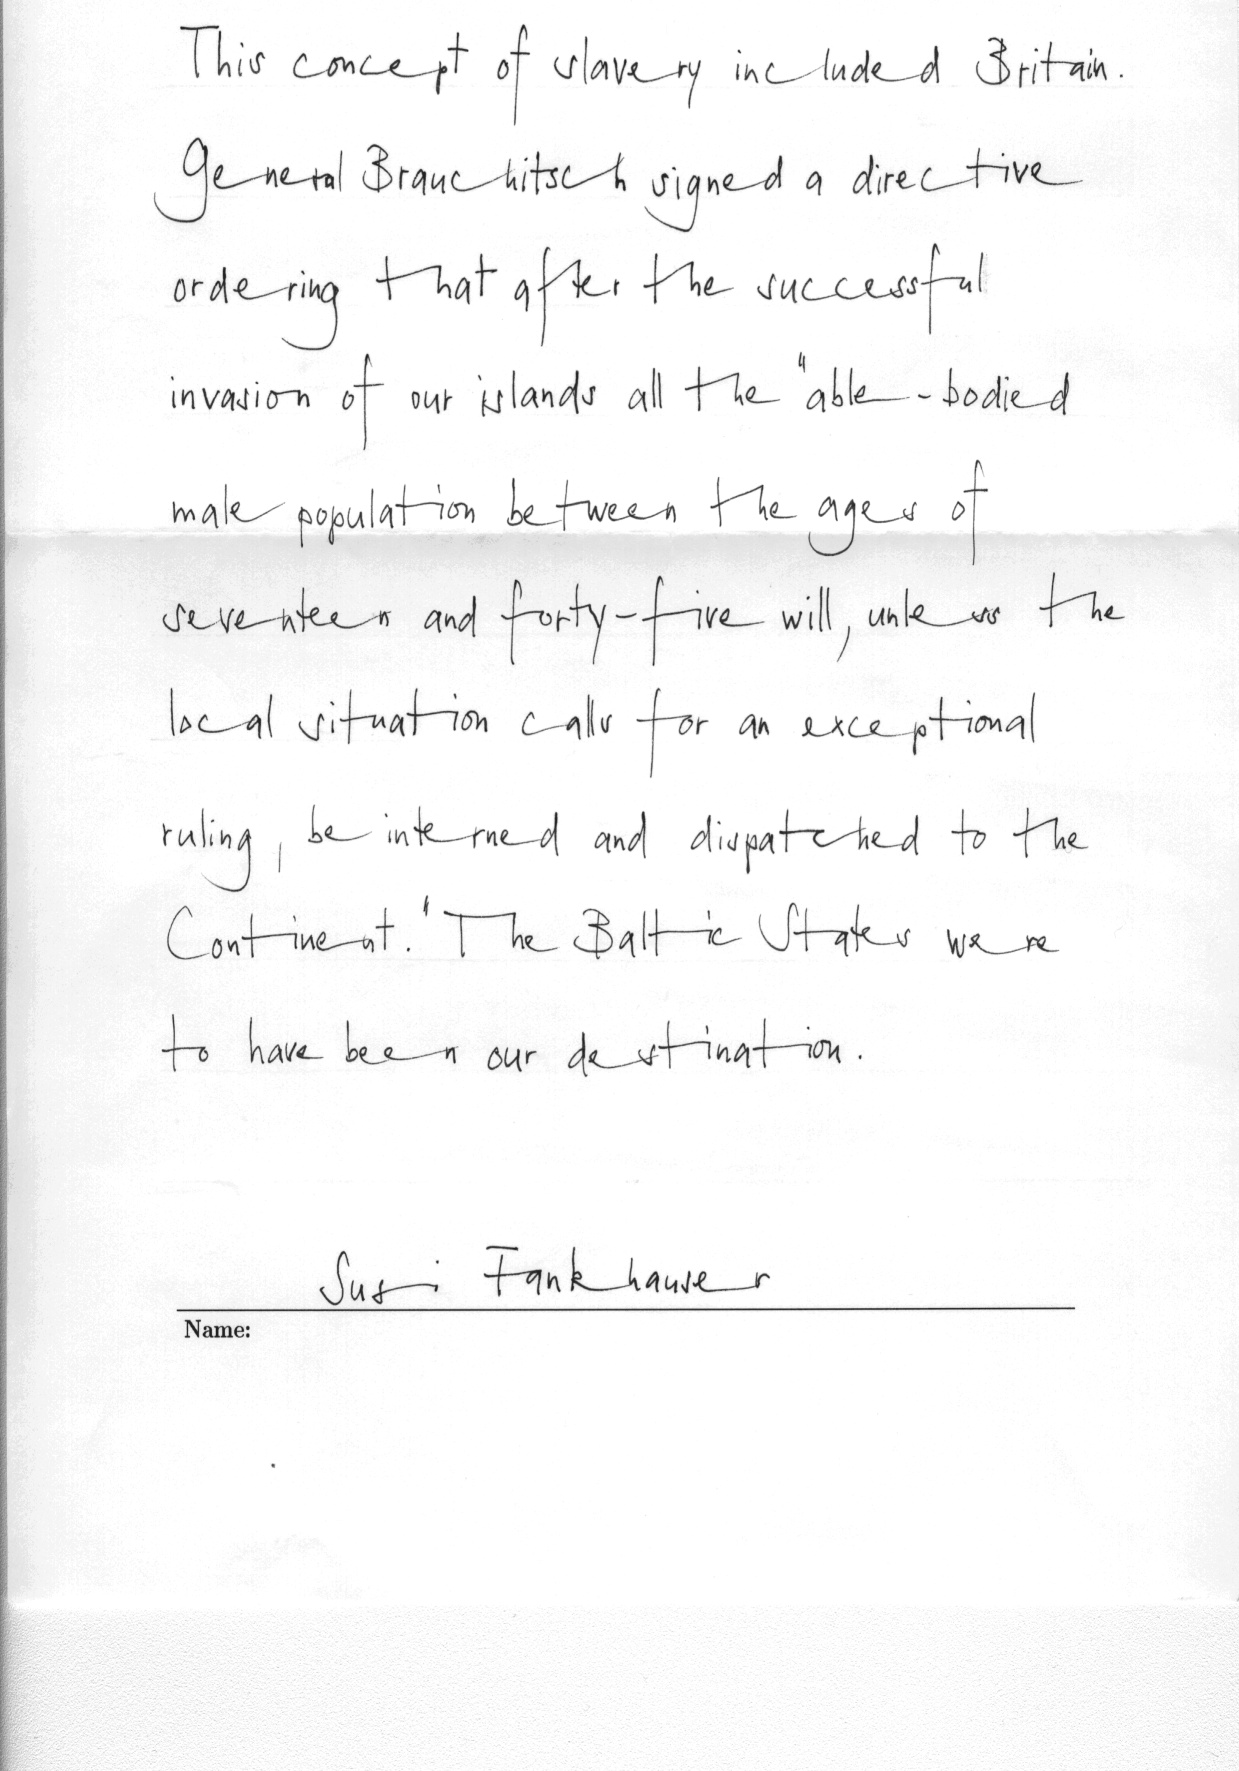 This concept of slavery included Britain.
General Brauchitsch signed a directive
ordering that after the successful
invasion of our islands all the "able-bodied
male population between the ages of
seventeen and forty-five will, unless the
local situation calls for an exceptional
ruling, be interned and dispatched to the
Continent." The Baltic States were
to have been our destination.
Susi Fankhauser
Name: